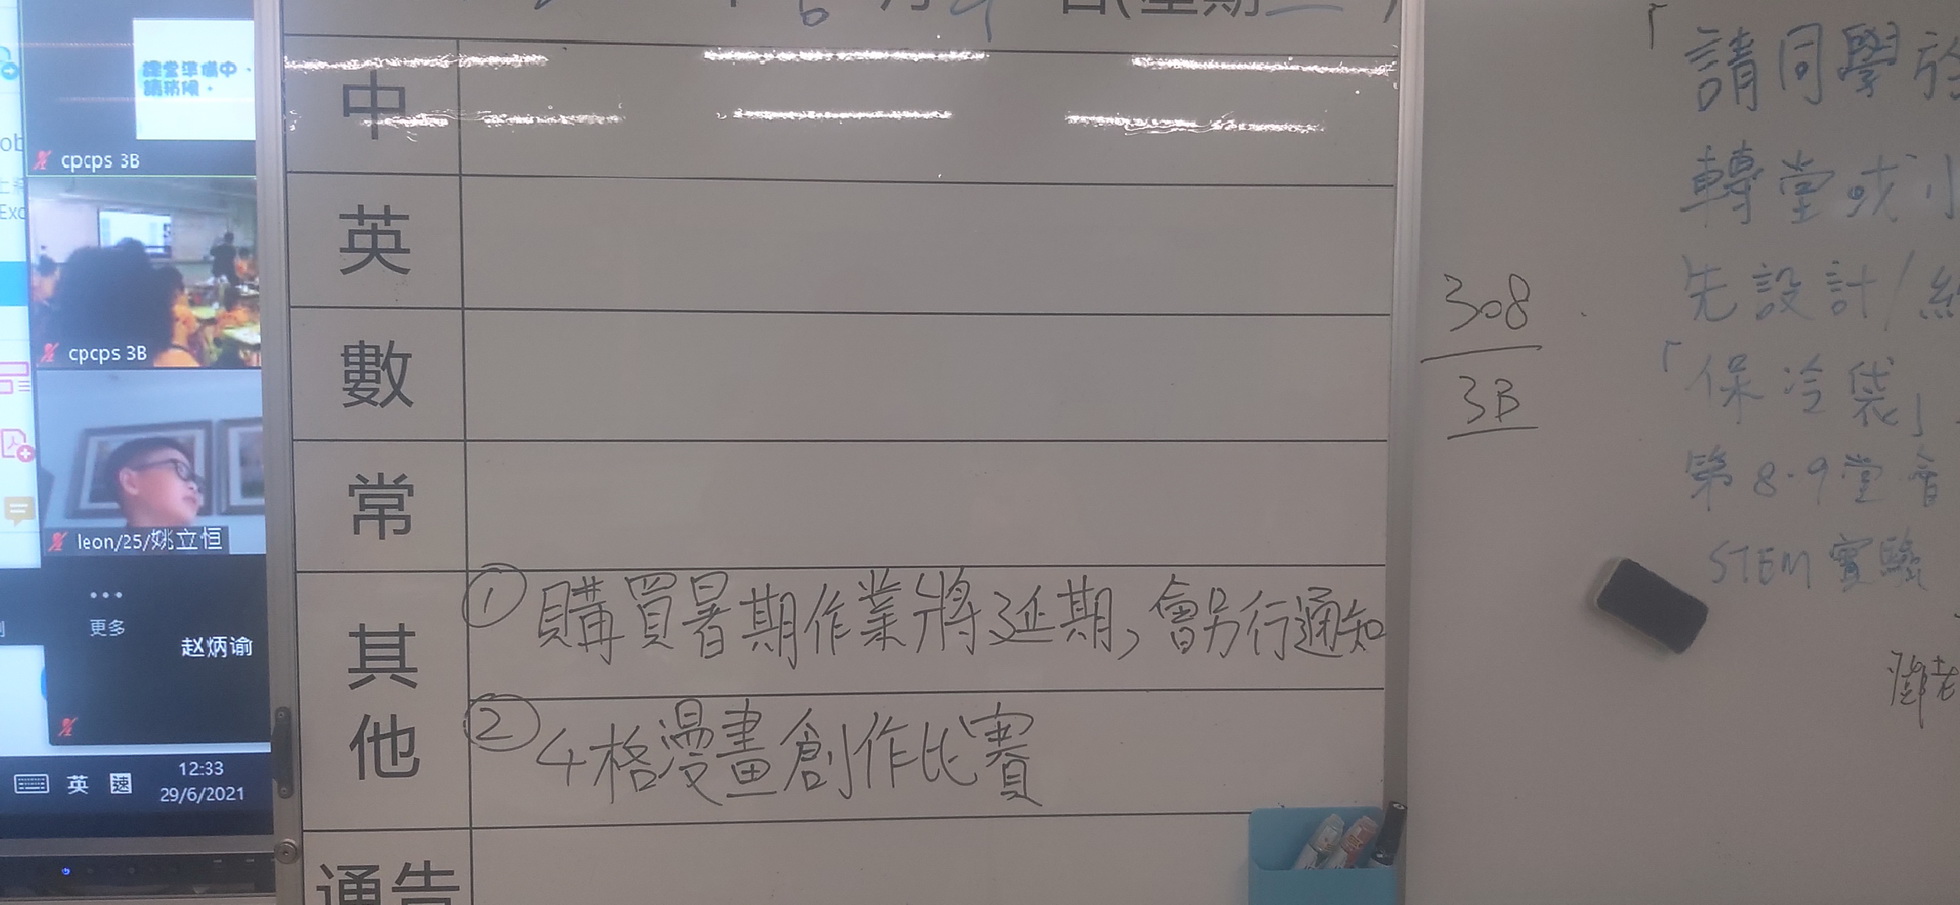 課堂準備中，
請稍候。
cpcps 3B
cpcps 3B
leon/25/姚立恒
更多
赵炳谕
英 速
12:33
29/6/2021
6 月 日(星期二)
中
英
數
常
其他
① 購買暑期作業將延期，會另行通知
② 4格漫畫創作比賽
通告
308
3B
「請同學於
轉堂或小
先設計/
「保冷袋」
第8-9堂會
STEM實驗